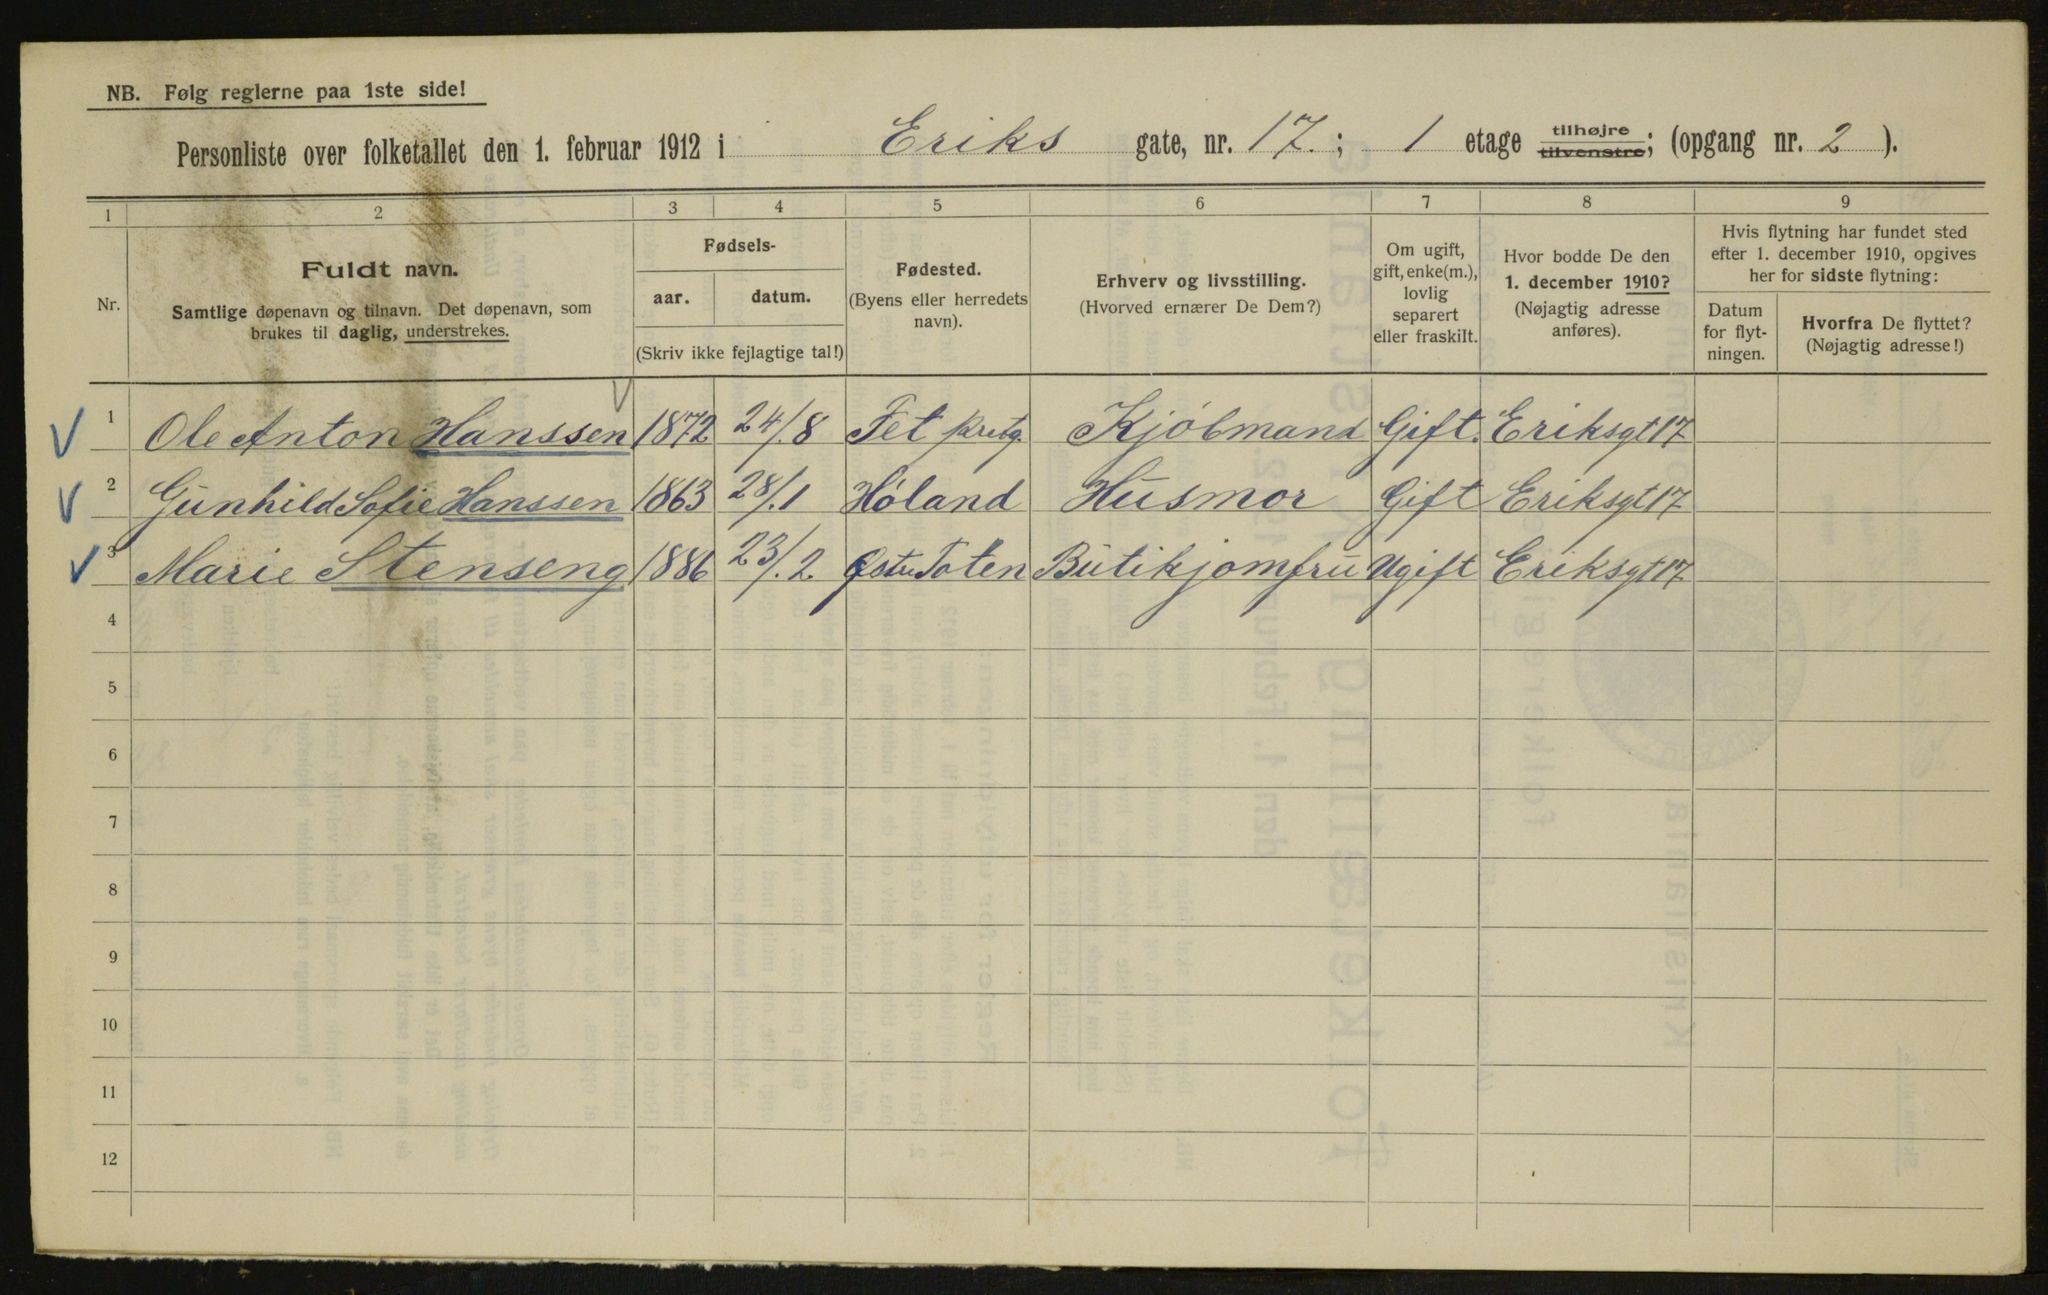 NB. Følg reglerne paa 1ste side!
Personliste over folketallet den 1. februar 1912 i Eriks gate, nr. 17. ; 1 etage tilhøjre tilvenstre; (opgang nr. 2 ).
1 2 3 4 5 6 7 8 9
Nr.
Fuldt navn.
Samtlige døpenavn og tilnavn. Det døpenavn, som
brukes til daglig, understrekes.
Fødsels-
aar. datum.
(Skriv ikke fejlagtige tal!)
Fødested.
(Byens eller herredets
navn).
Erhverv og livsstilling.
(Hvorved ernærer De Dem?)
Om ugift,
gift, enke(m.),
lovlig
separert
eller fraskilt.
Hvor bodde De den
1. december 1910?
(Nøjagtig adresse
anføres).
Hvis flytning har fundet sted
efter 1. december 1910, opgives
her for sidste flytning:
Datum
for flyt-
ningen.
Hvorfra De flyttet?
(Nøjagtig adresse!)
1 Ole Anton Hanssen 1872 24/8 Fet Kjøbmand Gift. Eriksgt 17
2 Gunhild Sofie Hanssen 1863 28/1 Høland Husmor Gift Eriksgt 17
3 Marie Stenseng 1886 23/2. Østre Toten Butikjomfru Ugift Eriksgt 17
4
5
6
7
8
9
10
11
12